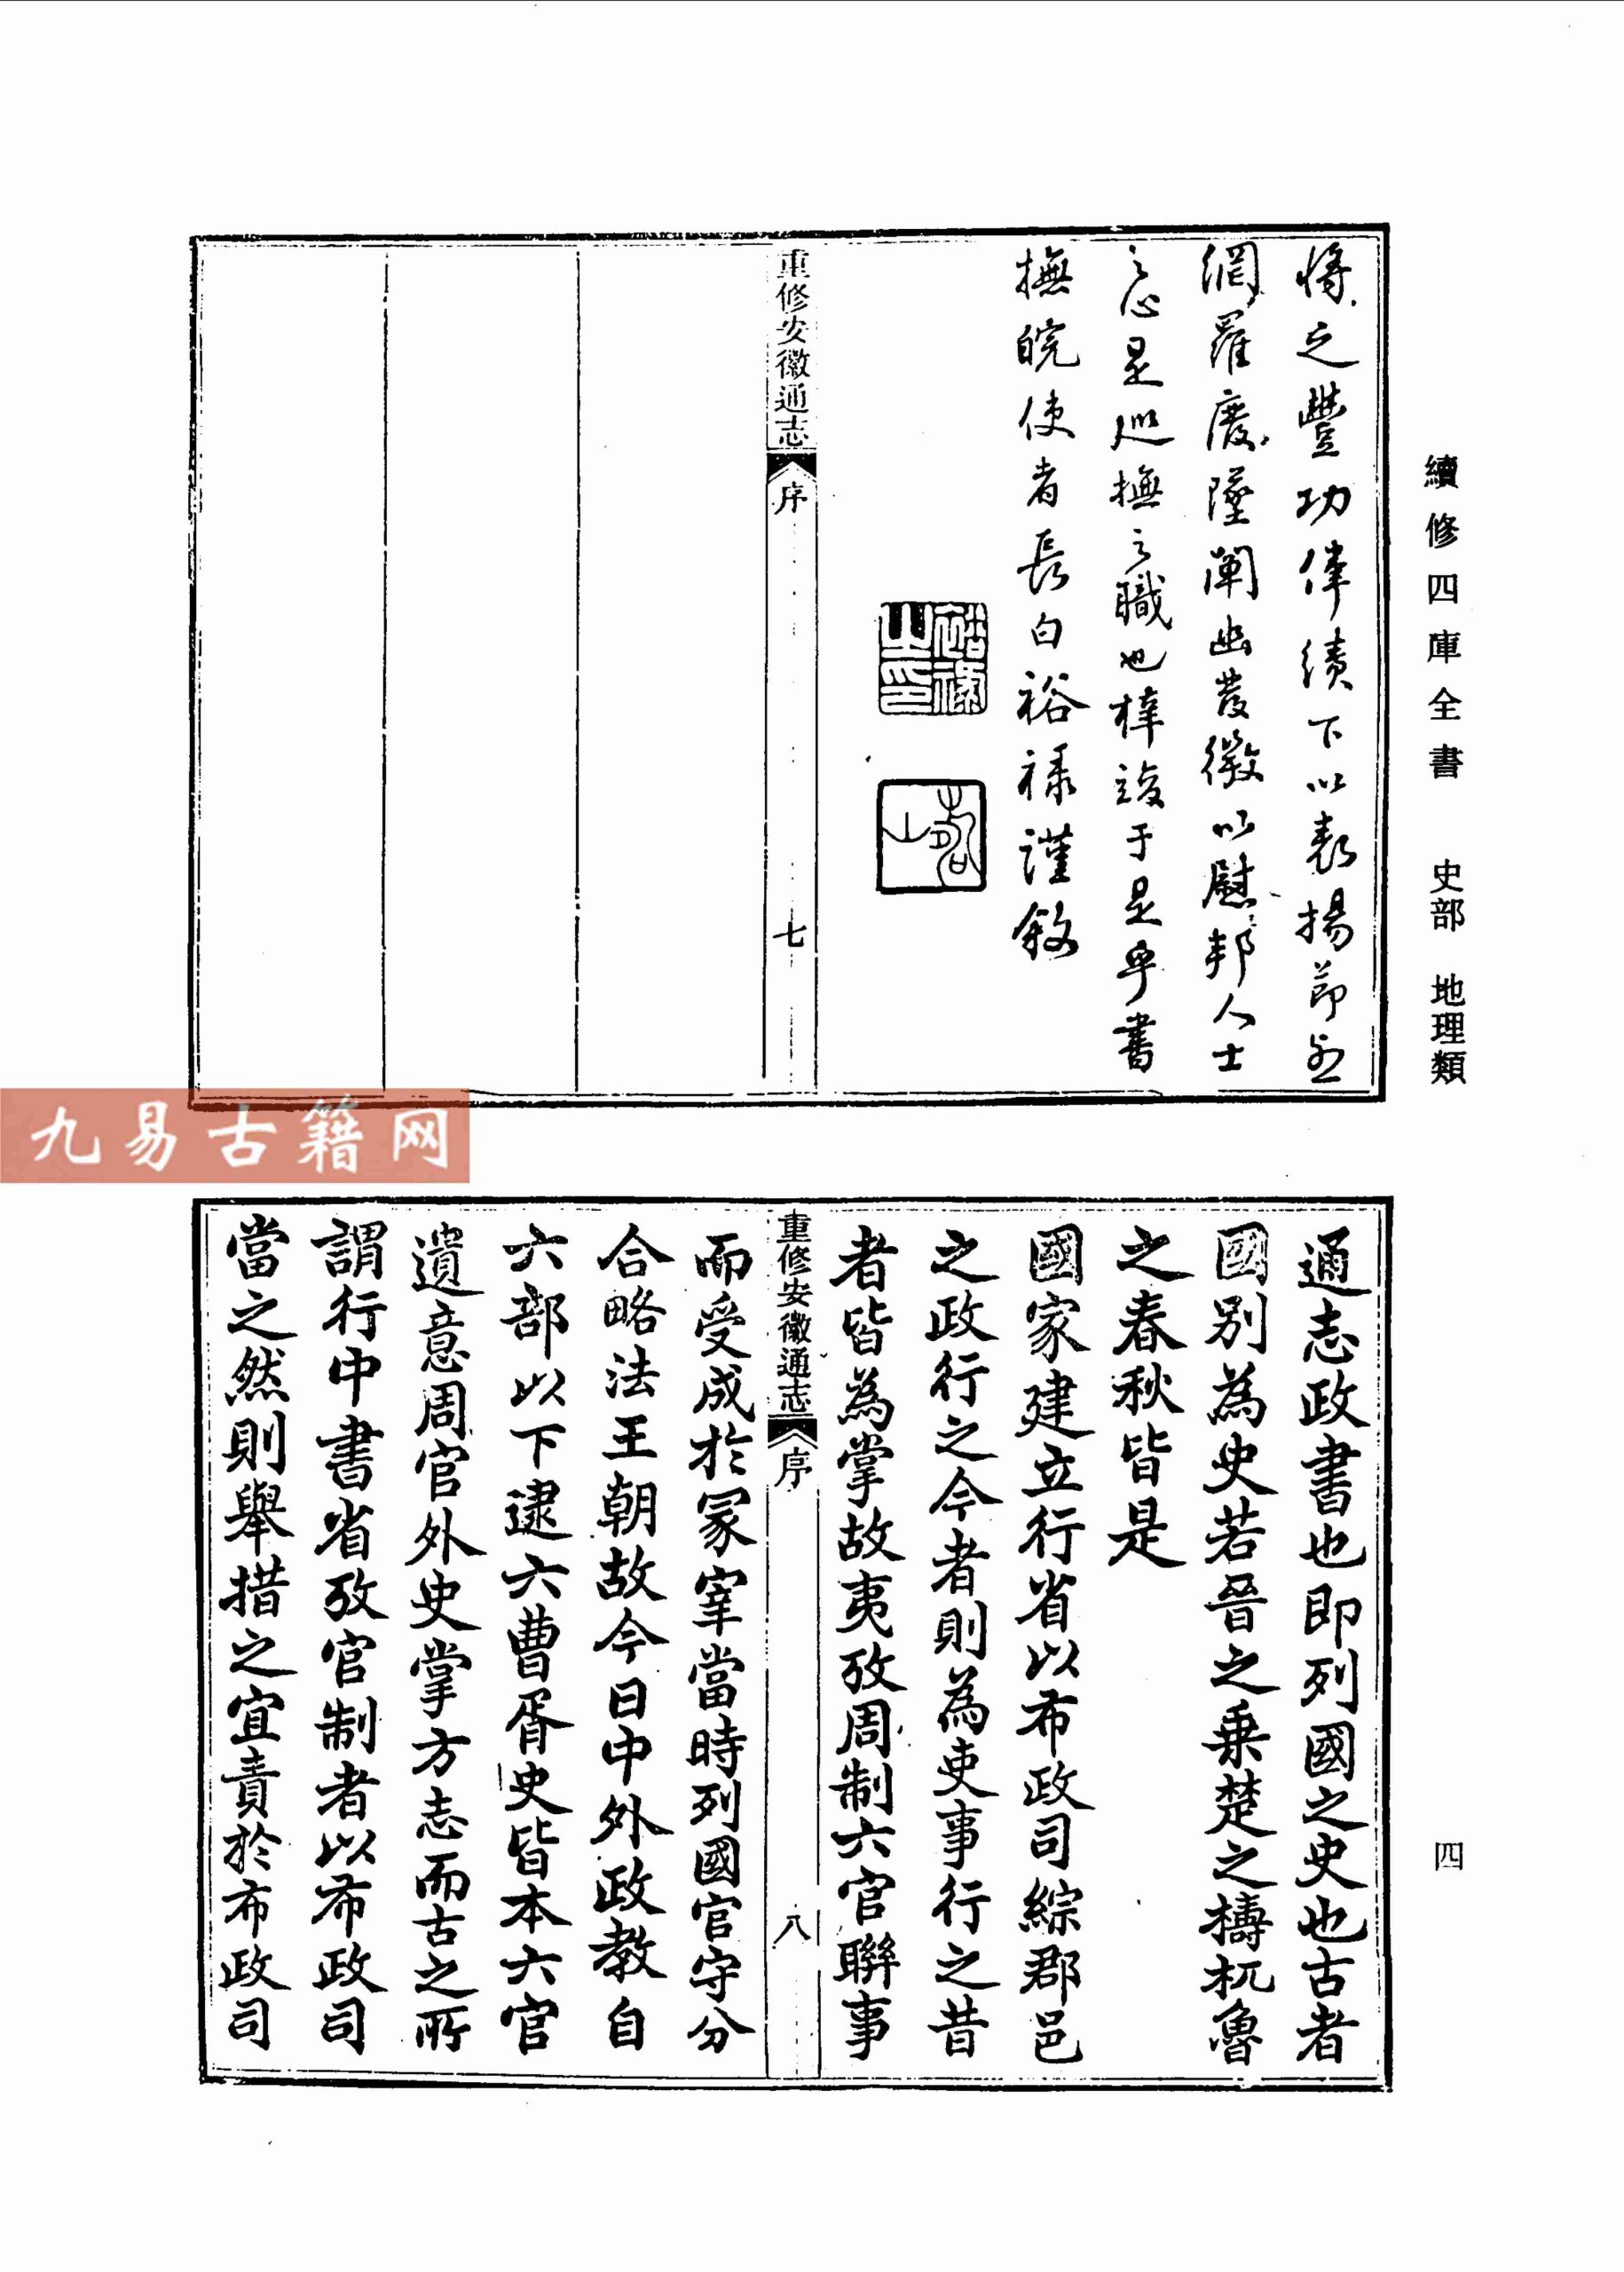 續修四庫全書 史部 地理類
將之豐功偉績下以表揚節烈
網羅廢墜闡幽發微以慰邦人士
之心是巡撫之職也梓竣于是乎書
撫皖使者長白裕祿謹敘
裕祿之印
重修安徽通志 序 七
通志政書也即列國之史也古者
國別為史若晉之乘楚之檮杌魯
之春秋皆是
國家建立行省以布政司綜郡邑
之政行之今者則為吏事行之昔
者皆為掌故夷攷周制六官聯事
重修安徽通志 序 八
而受成於冢宰當時列國官守分
合略法王朝故今日中外政教自
六部以下逮六曹胥史皆本六官
遺意周官外史掌方志而古之所
謂行中書省攷官制者以布政司
當之然則舉措之宜責於布政司
四
九易古籍网